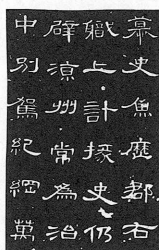 慕史魚歷郡右
職上計掾史仍
辟涼州常為治
中別駕紀綱萬